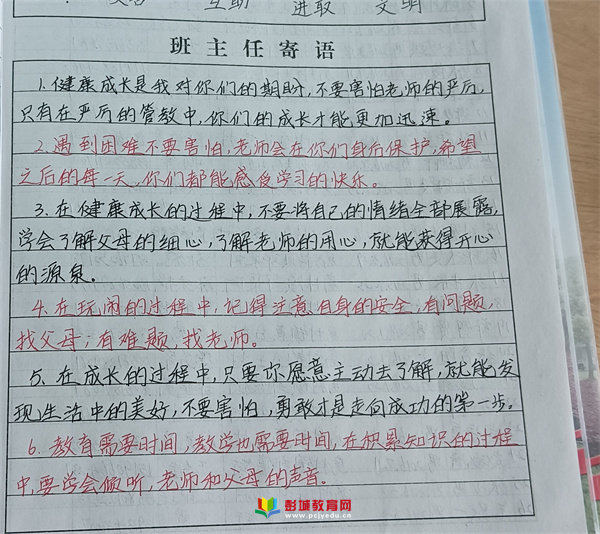 互助 进取 文明
班主任寄语
1.健康成长是我对你们的期盼,不要害怕老师的严厉,
只有在严厉的管教中,你们的成长才能更加迅速。
2.遇到困难不要害怕,老师会在你们身后保护,希望
之后的每一天,你们都能感受学习的快乐。
3.在健康成长的过程中,不要将自己的情绪全部展露,
学会了解父母的细心,了解老师的用心,就能获得开心
的源泉.
4.在玩闹的过程中,记得注意自身的安全,有问题,
找父母;有难题,找老师。
5.在成长的过程中,只要你愿意主动去了解,就能发
现生活中的美好,不要害怕,勇敢才是走向成功的第一步。
6.教育需要时间,教学也需要时间,在积累知识的过程
中,要学会倾听,老师和父母的声音。
彭城教育网
www.pcjyedu.cn